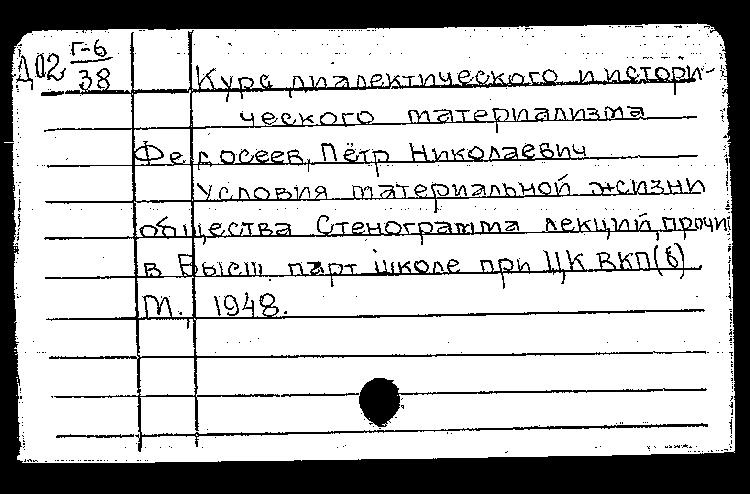 Д02 Г-6/38
Курс диалектического и истори-
ческого материализма
Федосеев, Пётр Николаевич
Условия материальной жизни
общества Стенограмма лекций, прочи
в Высш. парт школе при ЦК ВКП(б)
М., 1948.